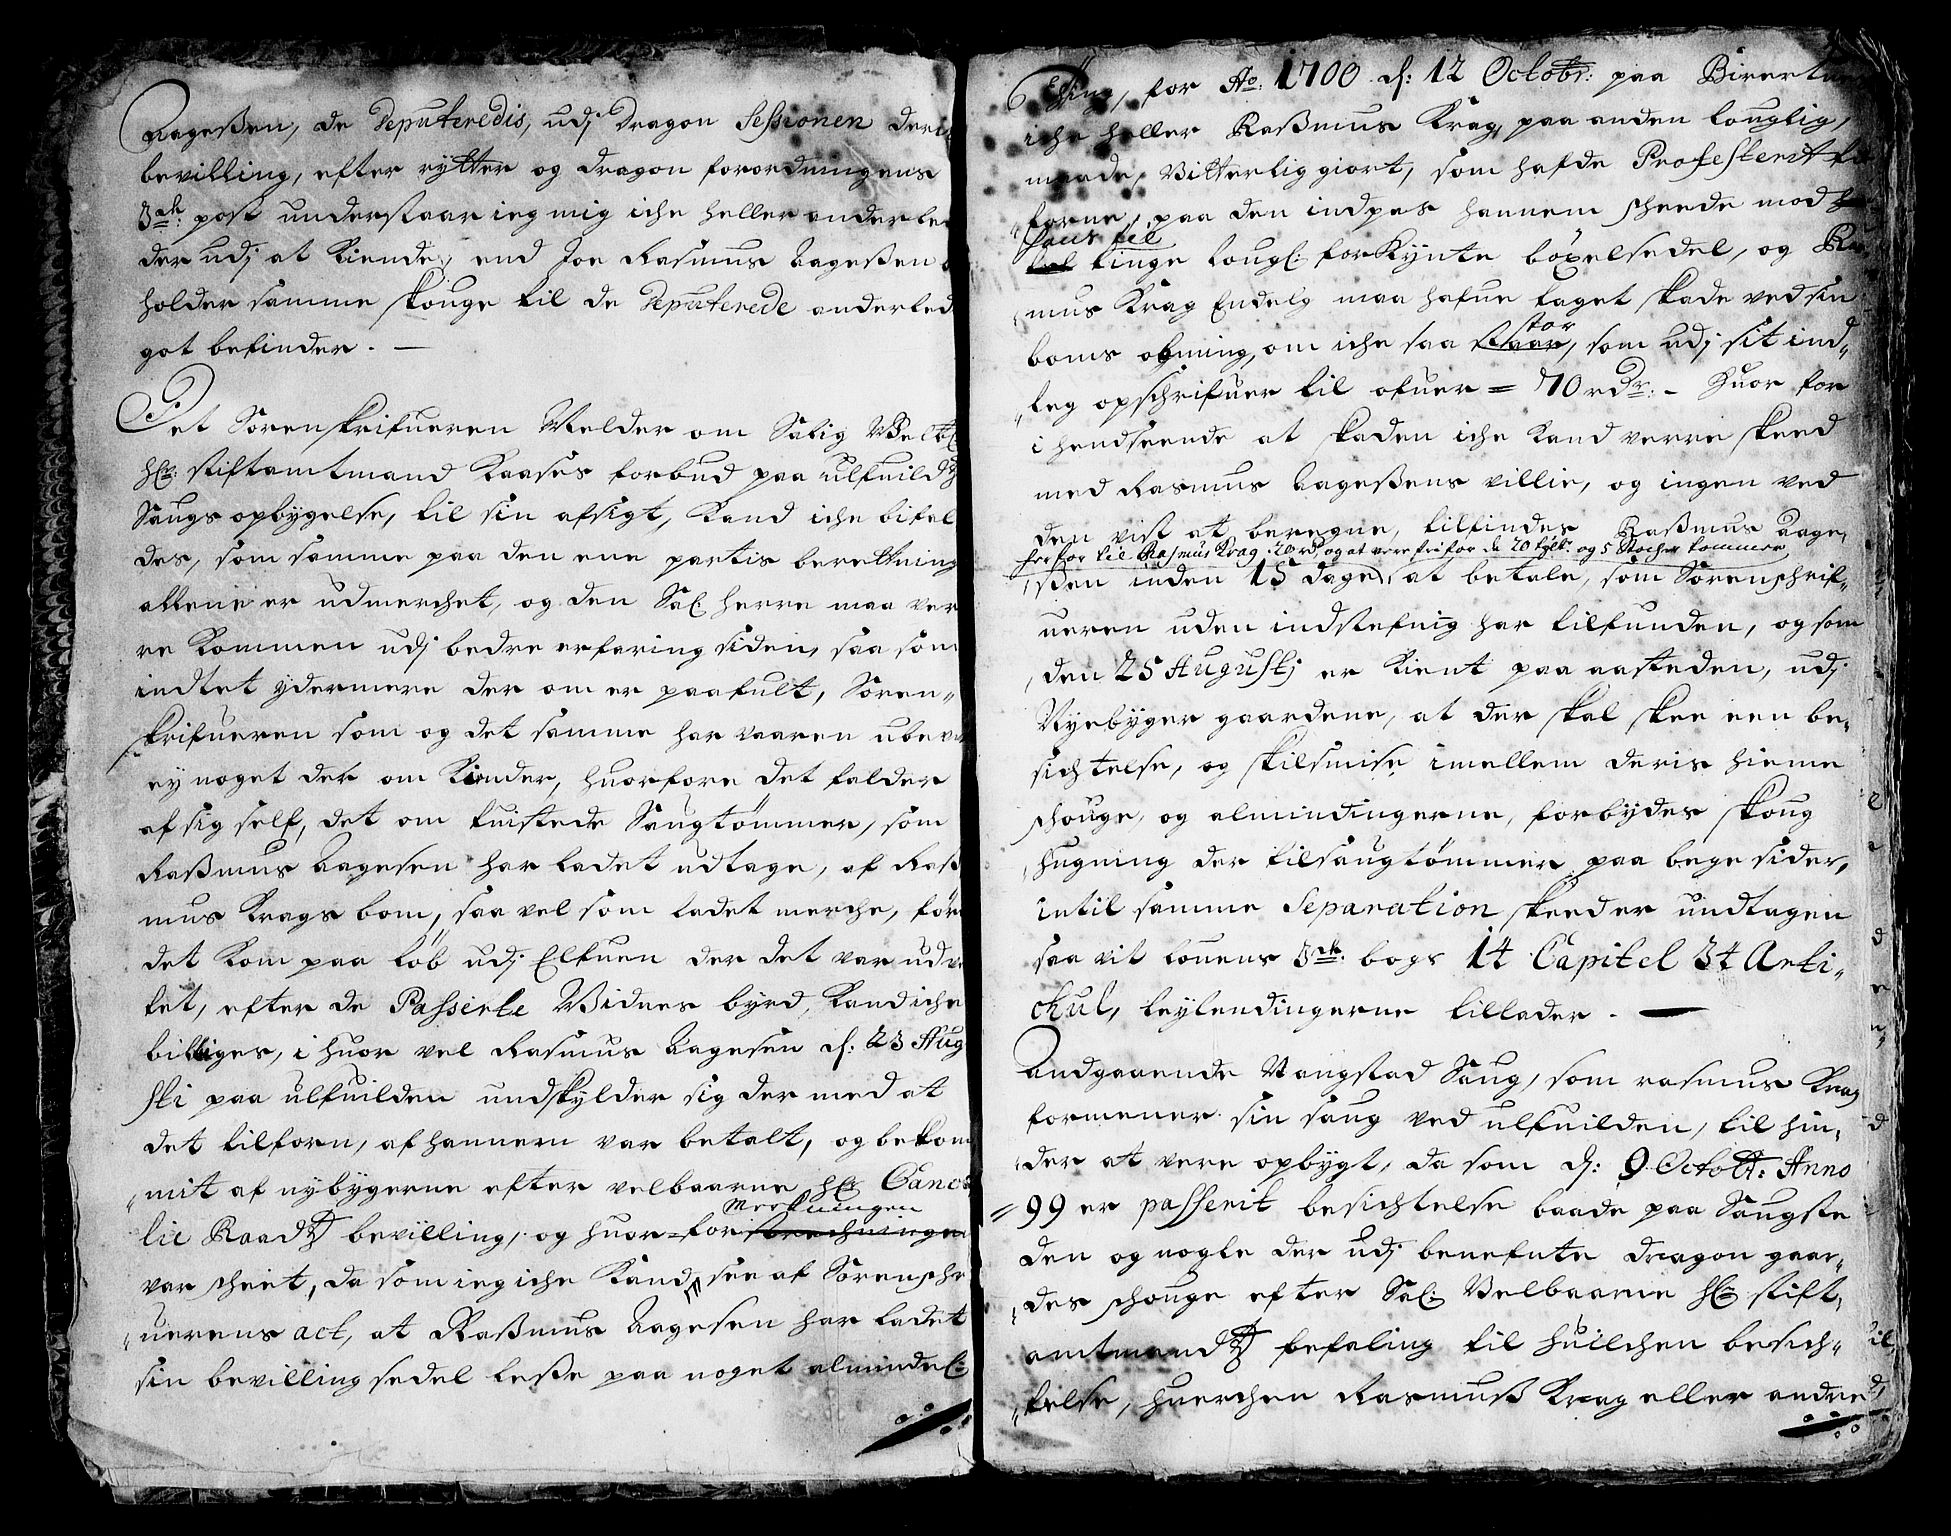 Aagesßen, de Deputeredis, udj Dragon Sessionen deris
bevilling, efter rytter og dragon forordningens
3die: post understaar ieg mig iche heller anderle
der udj at Kiende, end Joe Rasmus Aageßen
holder samme skouge til de Deputerede anderled
got befinder. —
Det Sorenskrifueren Melder om Salig Welb:
Hr: stiftamtmand Kaases forbud paa ulfuilds
Saugs opbygelse, til sin afsigt, Kand iche bifal
des, som samme paa den ene partis berettning
allene er udmerchet, og den Sal: herre maa ver
re Kommen udj bedre erfaring siden, saa som
indtet ydermere der om er paafult, Soren„
skrifueren som og det samme har vaaren ubev
ey noget der om Kiender, huorfore det falder
af sig self, det om tuistede Saugtömmer, som
Raßmus Aagesen har ladet udtage, af Raß
mus Krags bom, saa vel som ladet merche, för
det Kom paa löb udj Elfuen der det var udve
let, efter de Passerte Widnes byrd, Kand iche
billiges, i huor vel Rasmus Aagesen d: 23 Aug
sti paa ulfuilden undskylder sig der med at
det tilforn, af hannem var betalt, og bekom
„mit af nybygerne efter velbaarne Hr: Cance
lie Raads bevilling, og huor for Merkningen
var scheet, da som ieg iche Kand see af Sorenschr
„uerens act, at Raßmus Aagesen har ladet
sin bevilling sedel leße paa noget almindel:
Thing, for Ao: 1700 d: 12 Octobr: paa Birertu
iche heller Raßmus Krag, paa anden louglig,
maade, Vitterlig giort, som hafde Protesterit
„forne, paa den indpas hannem scheede mod
hans til
tinge lougl: forKynte böxelsedel, og Ras
„mus Krag Endelig maa hafue taget skade ved sin
boms obning, om iche saa stor, som udj sit ind„
„leg opschrifuer til ofuer = 70 rdr: - Huor for
i hendseende at skaden iche Kand verre skeed
med Rasmus Aageßens villie, og ingen ved
den vist at beregne, tilfindes Raßmus Aage„
herfor til Rasmus Krag 20 rd, og at vere fri for de 20 tylt: og 5 Stocher tommer
„ßen inden 15 dage, at betale, som Sorenschrif„
ueren uden indstefnig har tilfunden, og som
„den 25 Augustj er Kient paa aasteden, udj
Nyebyger gaardene, at der skal skee een be„
sichtelse, og skilsmise imellem deris hieme
schouge, og almindingerne, forbydes skoug
„hugning der til saugtömmer paa bege sider,
intil samme Separation skeeder undtagen
saa vit louens 3die: bogs 14 Capitel 34 Arti„
ckul, leylendingerne tillader. —
Andgaaende Vangstad Saug, som rasmus Krag
formener sin saug ved ulfuilden, til hin„
„der at vere opbygt, da som d: 9 Octobr: Anno
= 99 er passerit besichtelse baade paa Saugste
den og nogle der udj benefnte dragon gaar„
„des schouge efter Sal: Velbaarne Hr: stift„
amtmands befaling til huilchen besich„
„telse, huerchen Rasmuß Krag eller andre